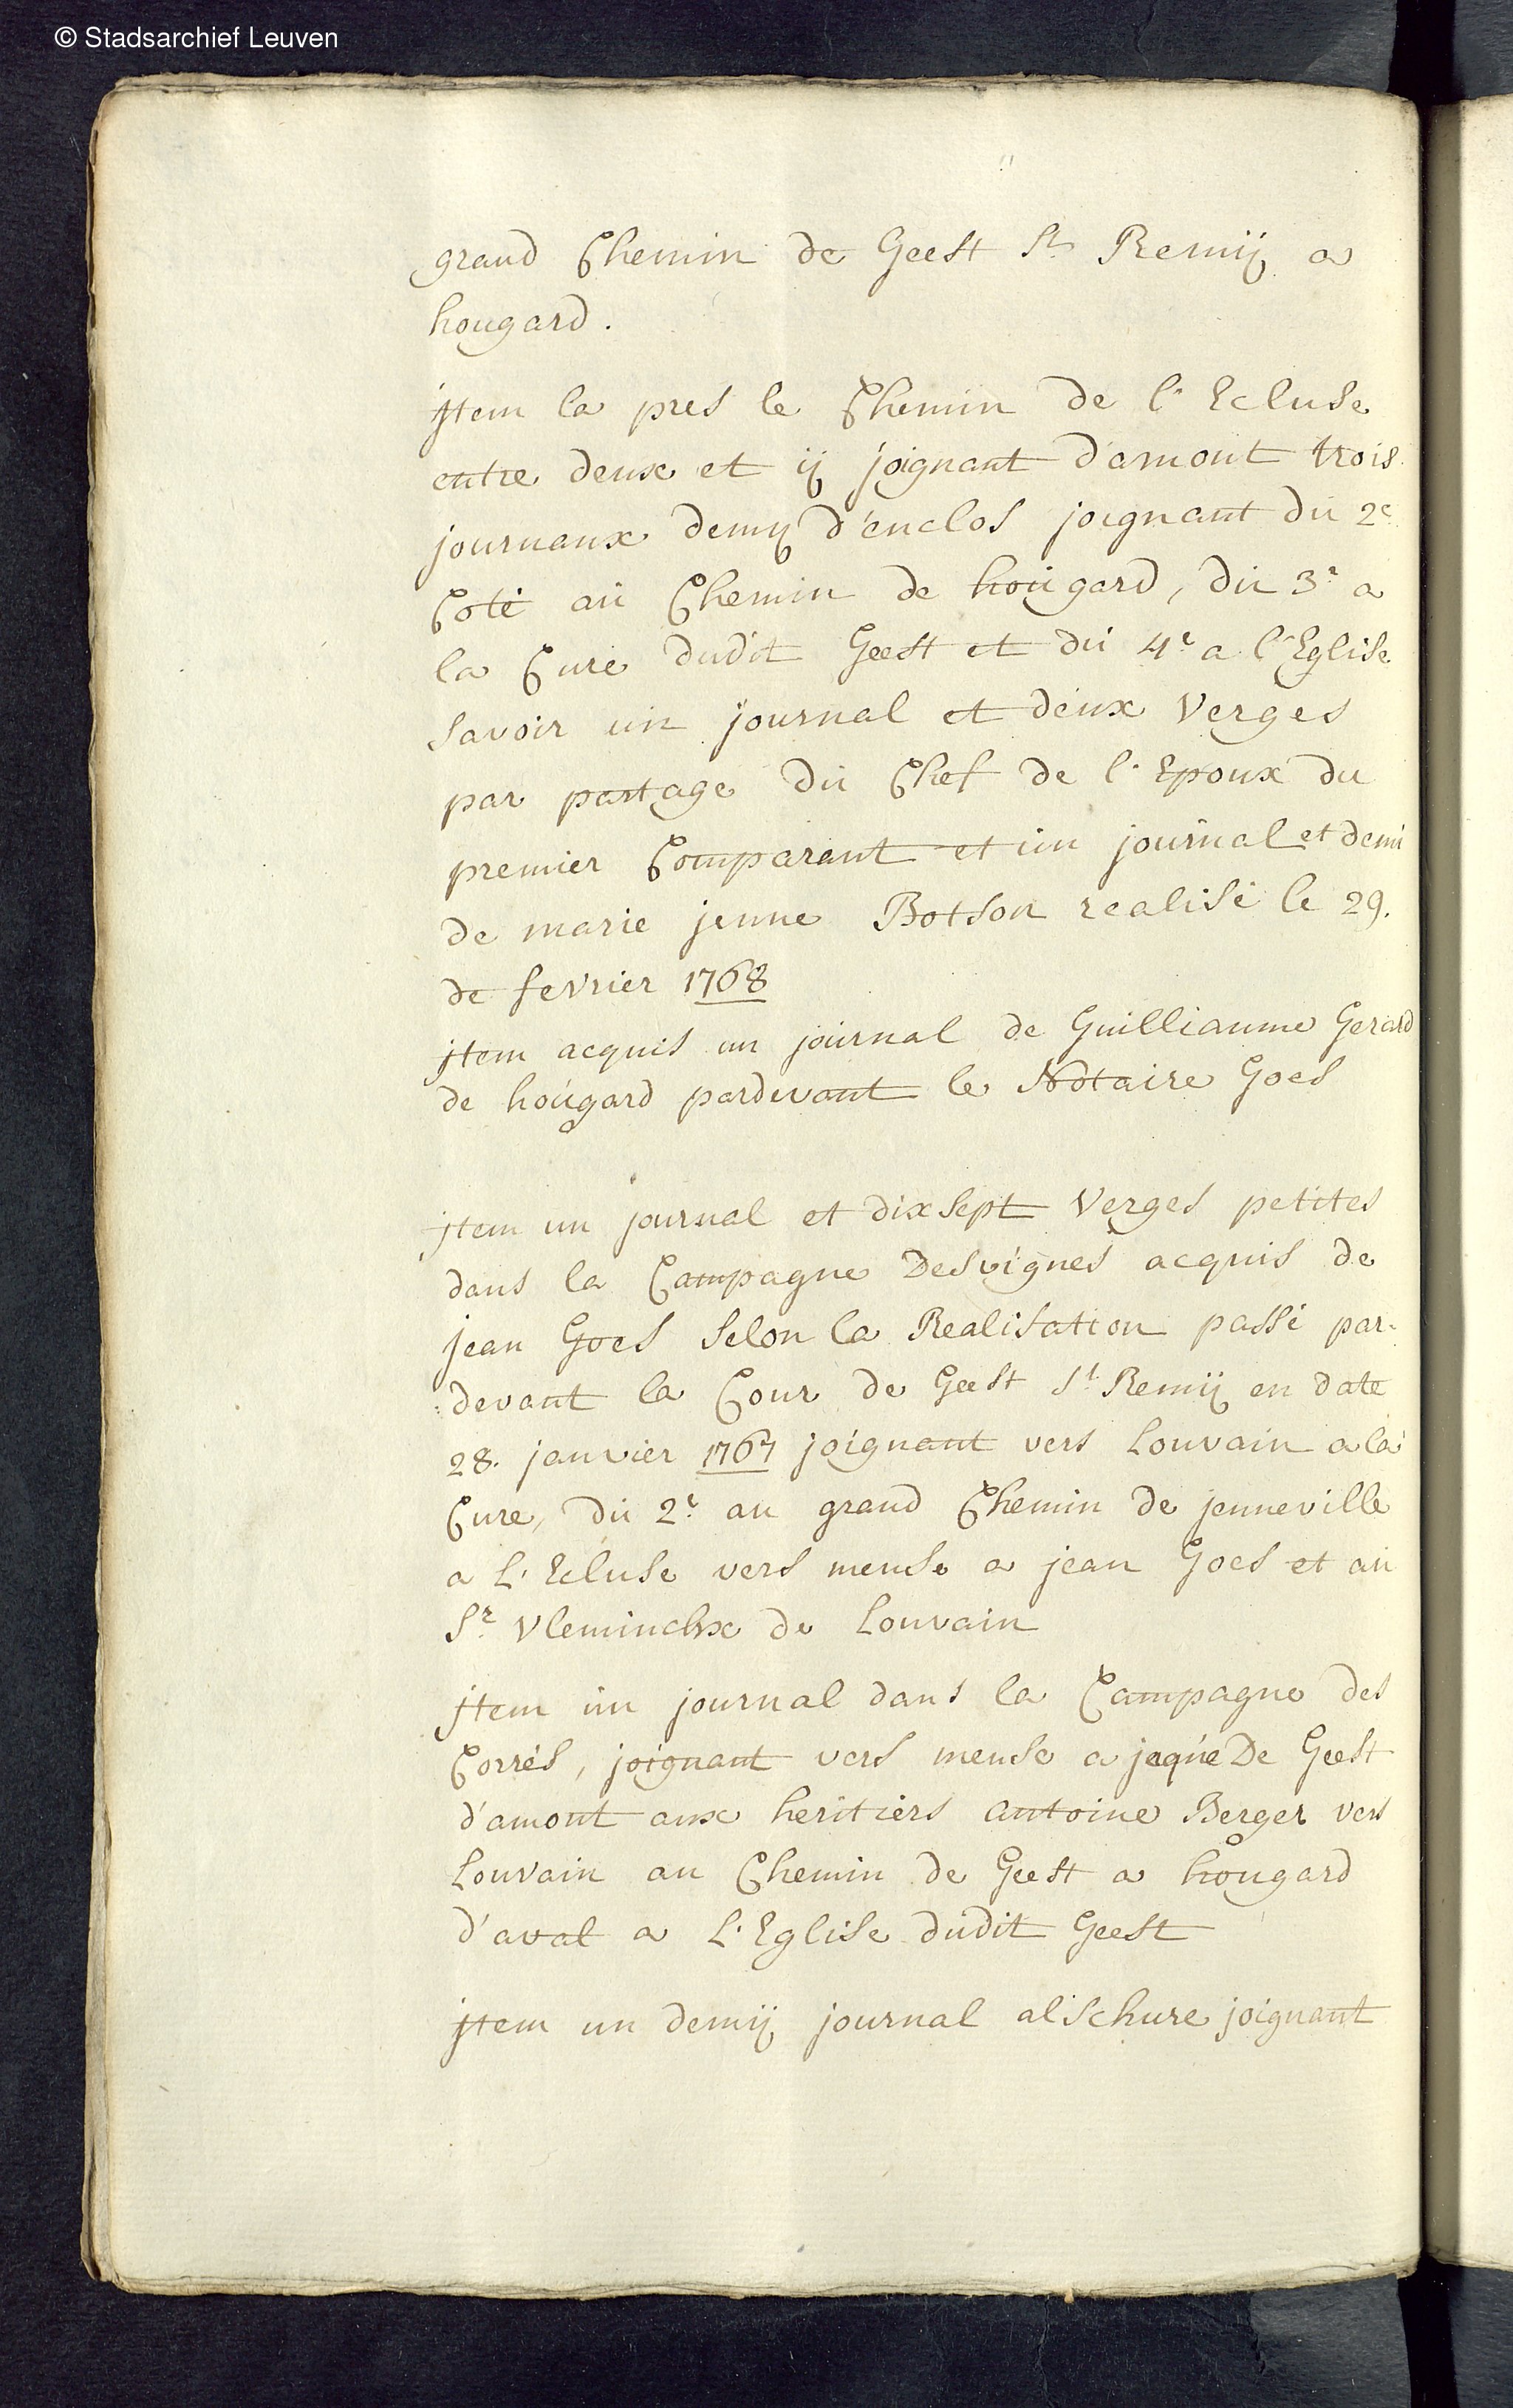 © Stadsarchief Leuven
grand Chemin de Geest St Remij a
hougard.
jtem la pres le Chemin de l'Ecluse
entre deux et ij joignant d'amont trois
journaux demij d'enclos joignant du 2e
Coté au Chemin de hougard, du 3e a
la Cure dudit Geest et du 4e a l'Eglise
savoir un journal et deux Verges
par partage du Chef de l'Epoux du
premier Comparant et un journal et demi
de marie jenne Botson realisé le 29.
de fevrier 1768
jtem acquis un journal de Guilliaume Gerard
de hougard pardevant le Notaire Goes
jtem un journal et dix sept Verges petites
dans la Campagne Desvignes acquis de
jean Goes selon la Realisation passé par-
devant la Cour de Geest St Remij en date
28. janvier 1767 joignant vers Louvain a la
Cure, du 2e au grand Chemin de jenneville
a L'Ecluse vers meuse a jean Goes et au
Sr Vleminckx de Louvain
jtem un journal dans la Campagne des
Corrés, joignant vers meuse a jaque De Geest
d'amont aux heritiers antoine Berger vers
Louvain au Chemin de Geest a hougard
d'aval a L'Eglise dudit Geest
jtem un demij journal alschure joignant